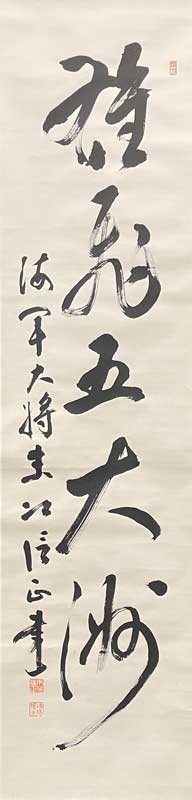 雄飛五大洲
海軍大将末次信正書